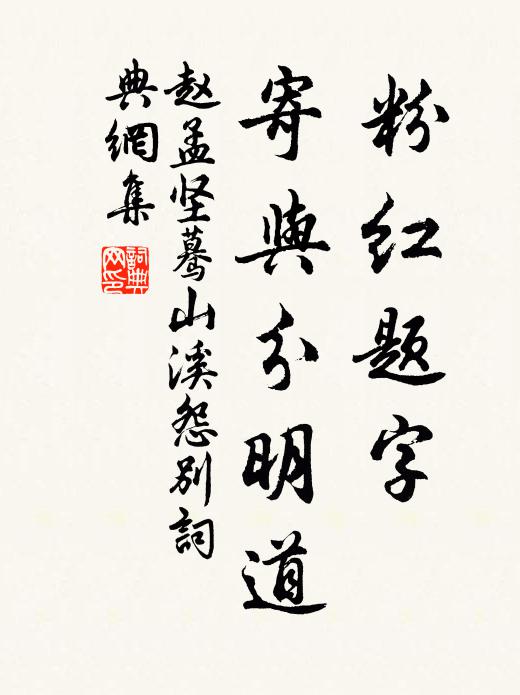 粉红题字
寄與分明道
赵孟坚蓦山溪怨别詞
典網集
詞典网印